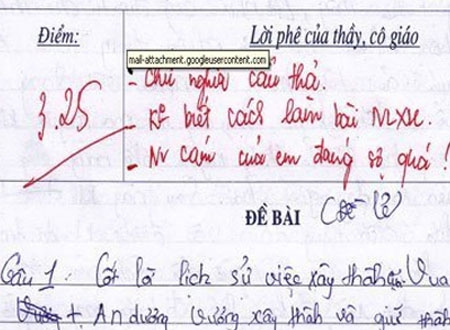 Điểm:
Lời phê của thầy, cô giáo
mail-attachment.googleusercontent.com
3,25
- Chữ nghĩa cẩu thả.
- Ko biết cách làm bài NLXH.
- N cảm của em đáng sợ quá!
ĐỀ BÀI
Câu 1: Cốt lõi lịch sử việc xây thành của Vua
+ An dương Vương xây thành và giữ thành